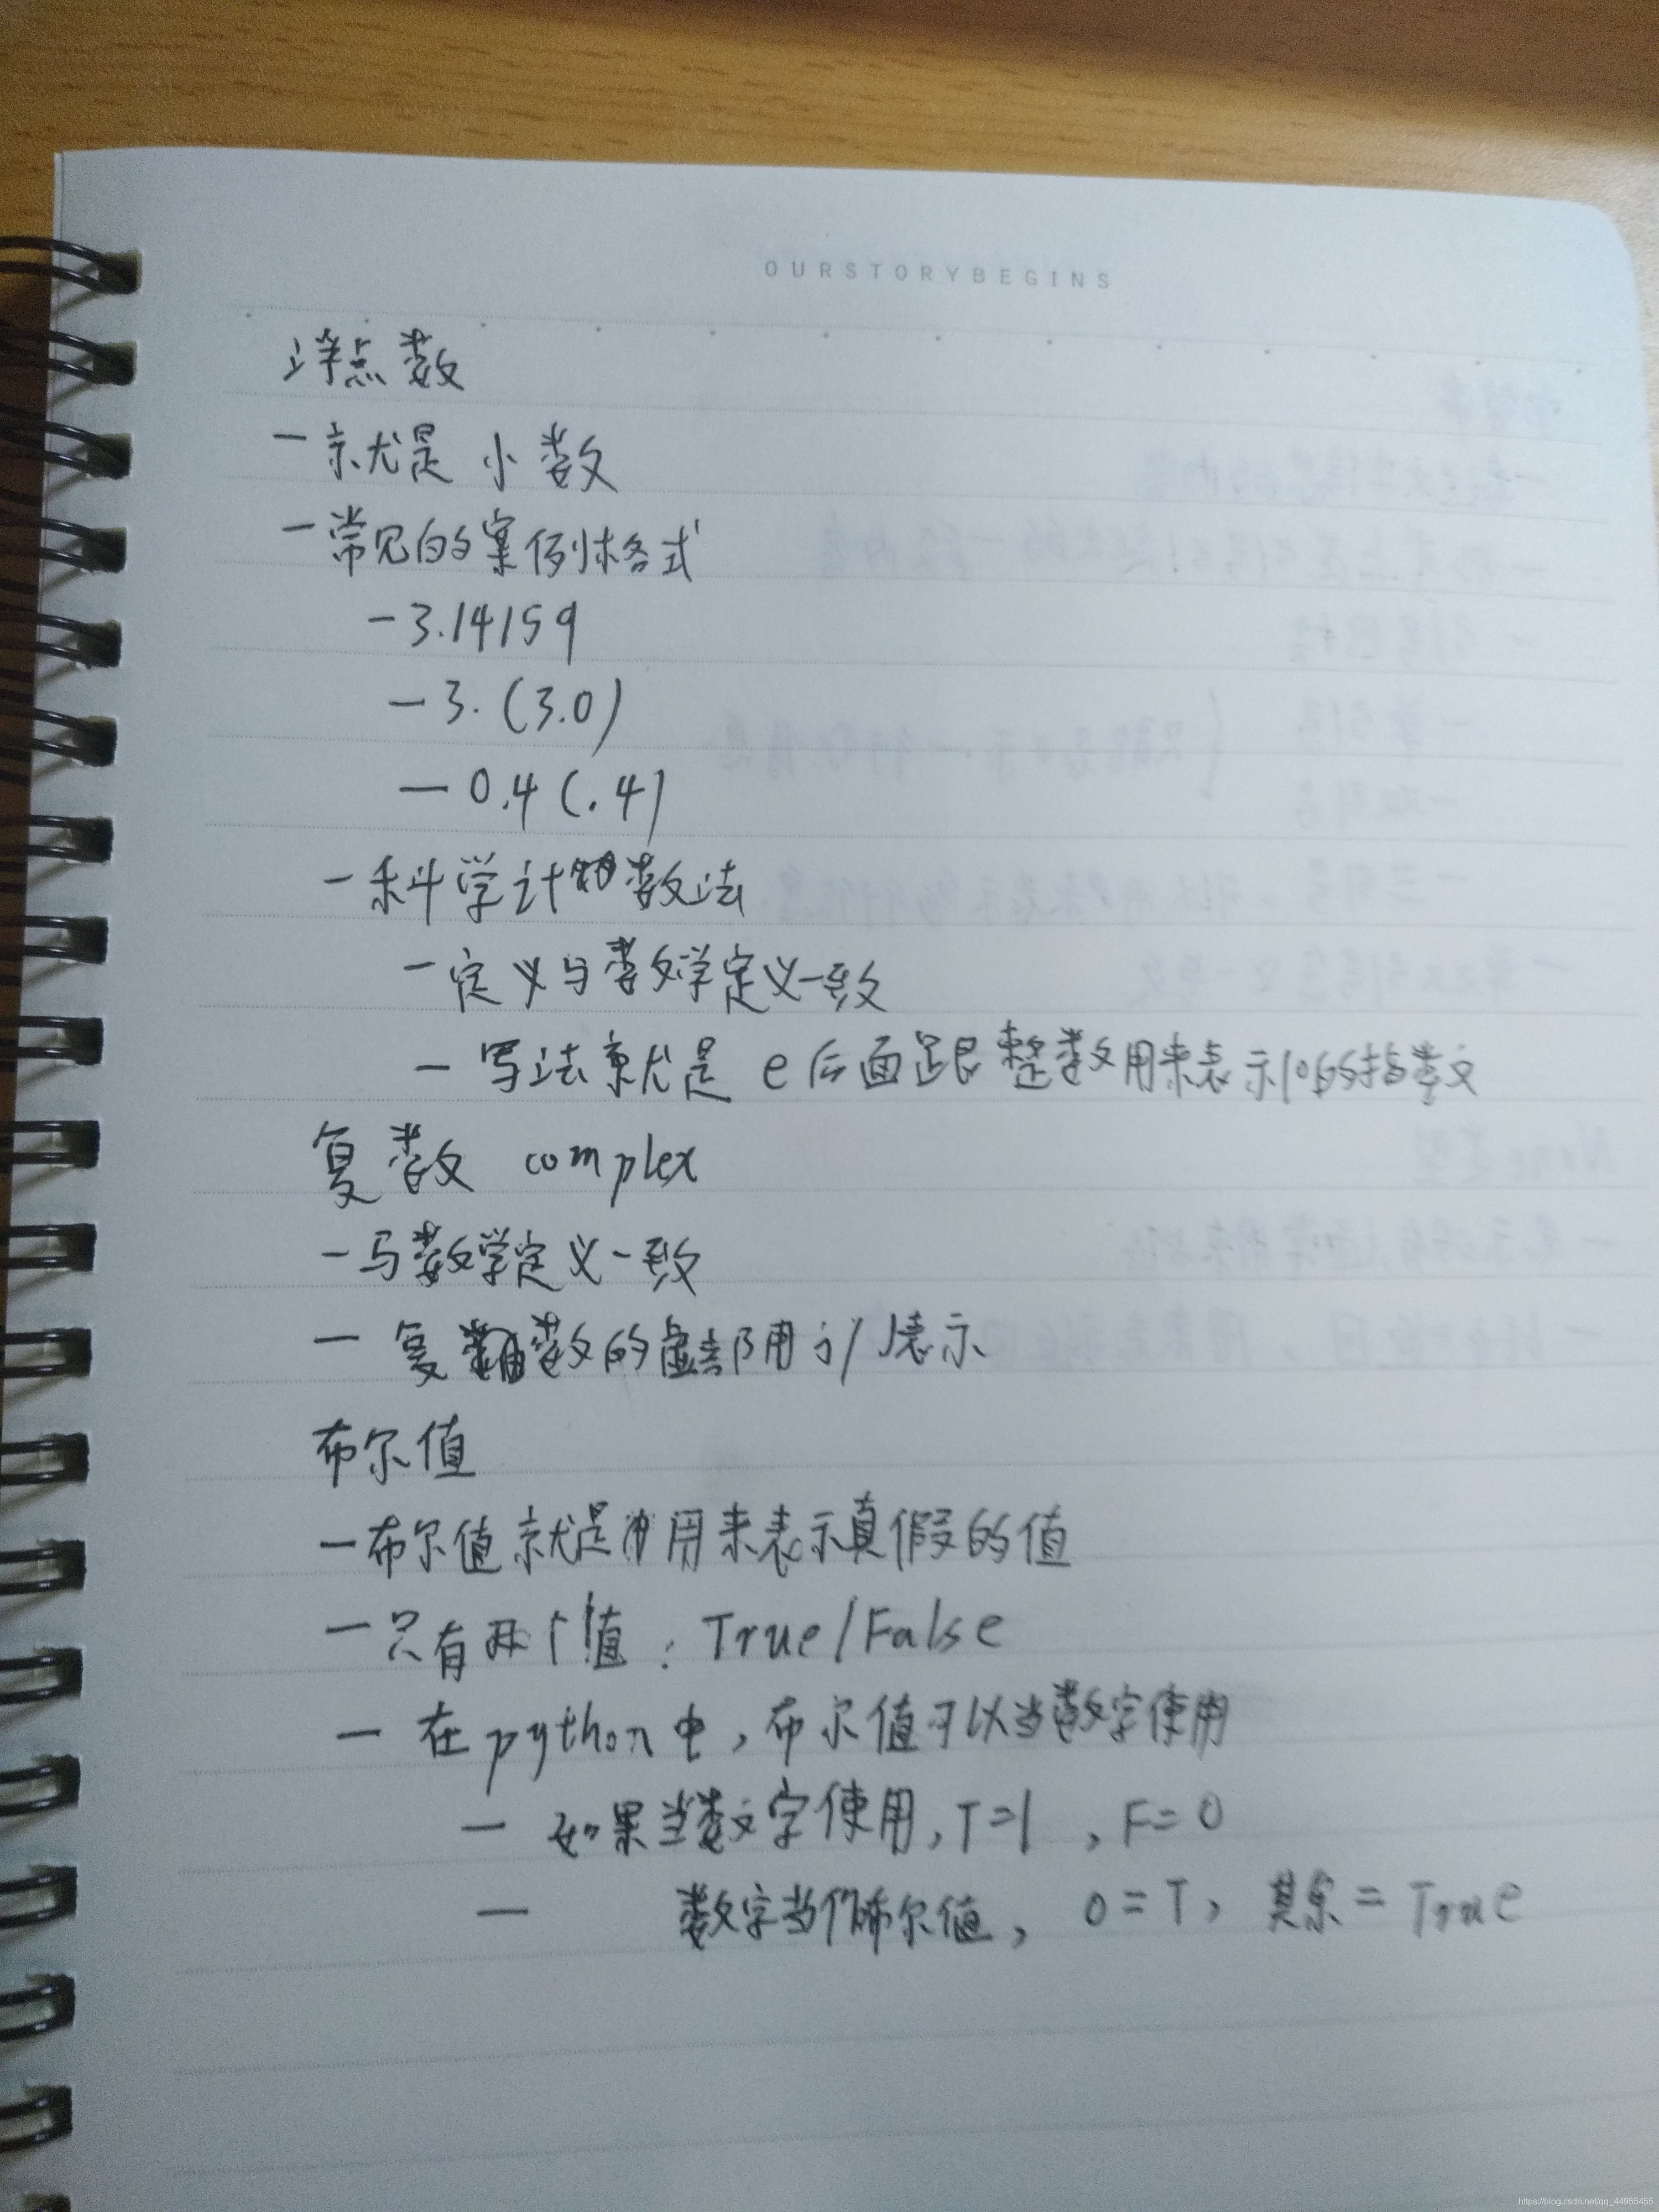 OURSTORYBEGINS
浮点数
一就是 小数
一常见的案例格式
-3.14159
-3. (3.0)
-0.4 (.4)
一科学计数法
一定义与数学定义一致
一写法就是 e后面跟整数用来表示10的指数
复数 complex
一与数学定义一致
一 复数的虚部用 j/J表示
布尔值
一布尔值就是用来表示真假的值
一只有两个值:True/False
一 在python中,布尔值可以当数字使用
一 如果当数字使用,T=1 ,F=0
一 数字当作布尔值, 0=T, 其余=True
https://blog.csdn.net/qq_44955455